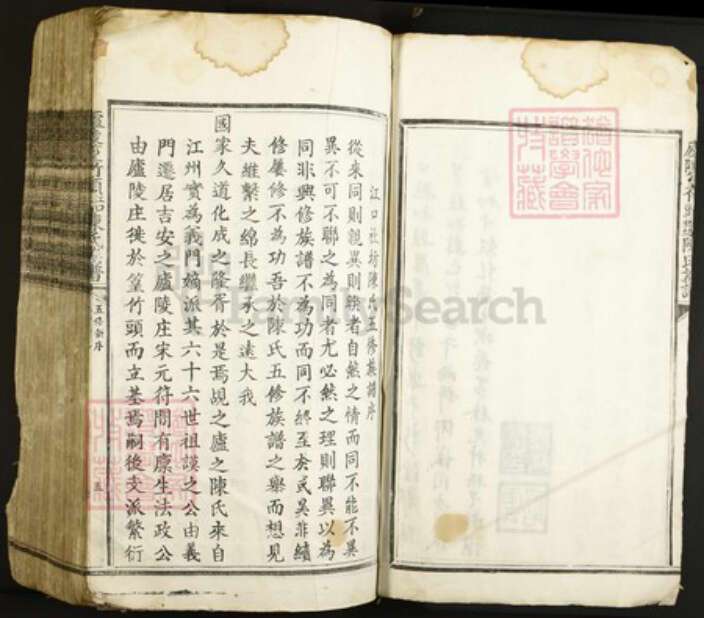 江口社坊陳氏五修族譜序
從來同則親異則踈者自然之情而同不能不異
異不可不聯之為同者尤必然之理則聯異以為
同非興修族譜不為功而同不終至於異非續
修屢修不為功吾於陳氏五修族譜之舉而想見
夫維繫之綿長繼承之遠大我
國家久道化成之隆胥於是焉覘之廬之陳氏來自
江州實為義門嫡派其六十六世祖謨之公由義
門遷居吉安之廬陵庄宋元符間有廪生法政公
由廬陵庄徙於篁竹頭而立基焉嗣後支派繁衍
五修新序
五
FamilySearch